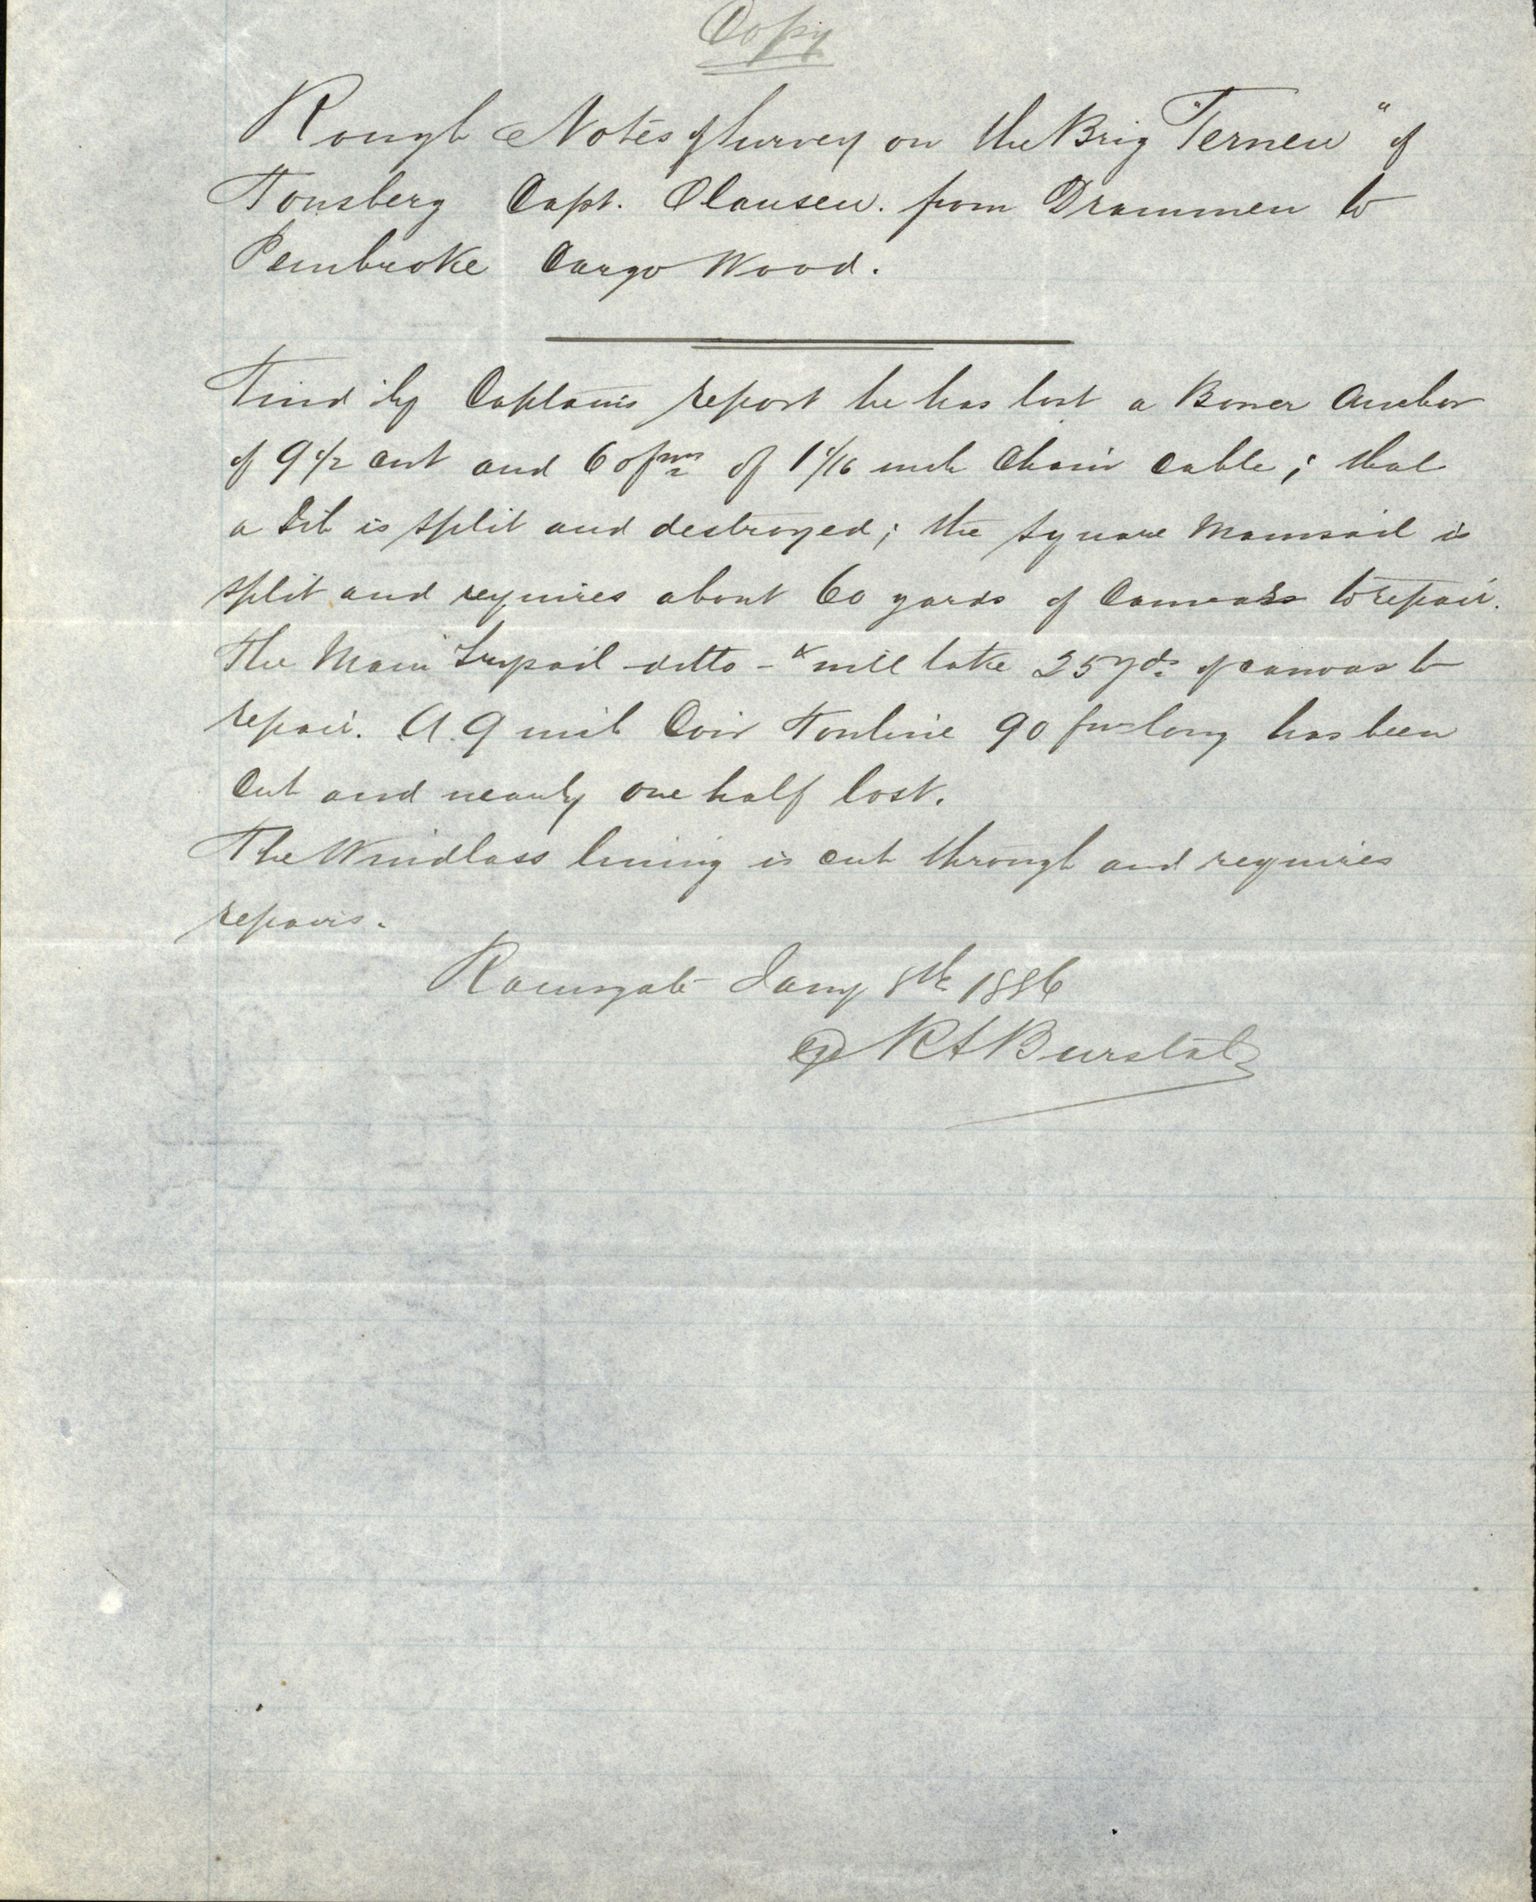 Copy
Rough Notes of Survey on the Brig "Ternen" of
Tonsberg Capt. Clausen. from Drammen to
Pembroke Cargo Wood.
Find by Captains report he has lost a Bower Anchor
of 9 1/2 cwt and 60 fms of 1 1/16 inch Chain Cable; that
a Jib is split and destroyed; the Square Mainsail is
split and requires about 60 yards of Canvass to repair.
The Main Trysail -ditto- & will take 25 yds. of canvas to
repair. A 9 inch Coir Towline 90 fms long has been
Cut and nearly one half lost.
The Windlass lining is cut through and requires
repairs.
Ramsgate Jany 8th 1886
RS Burstal